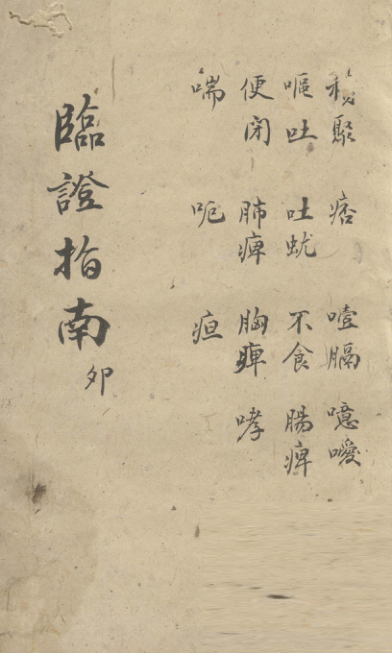 聚 痞 噎膈 噫噯
嘔吐 吐蚘 不食 腸痺
便閉 肺痺 胸痺 哮
喘 呃 疸
臨證指南 卯